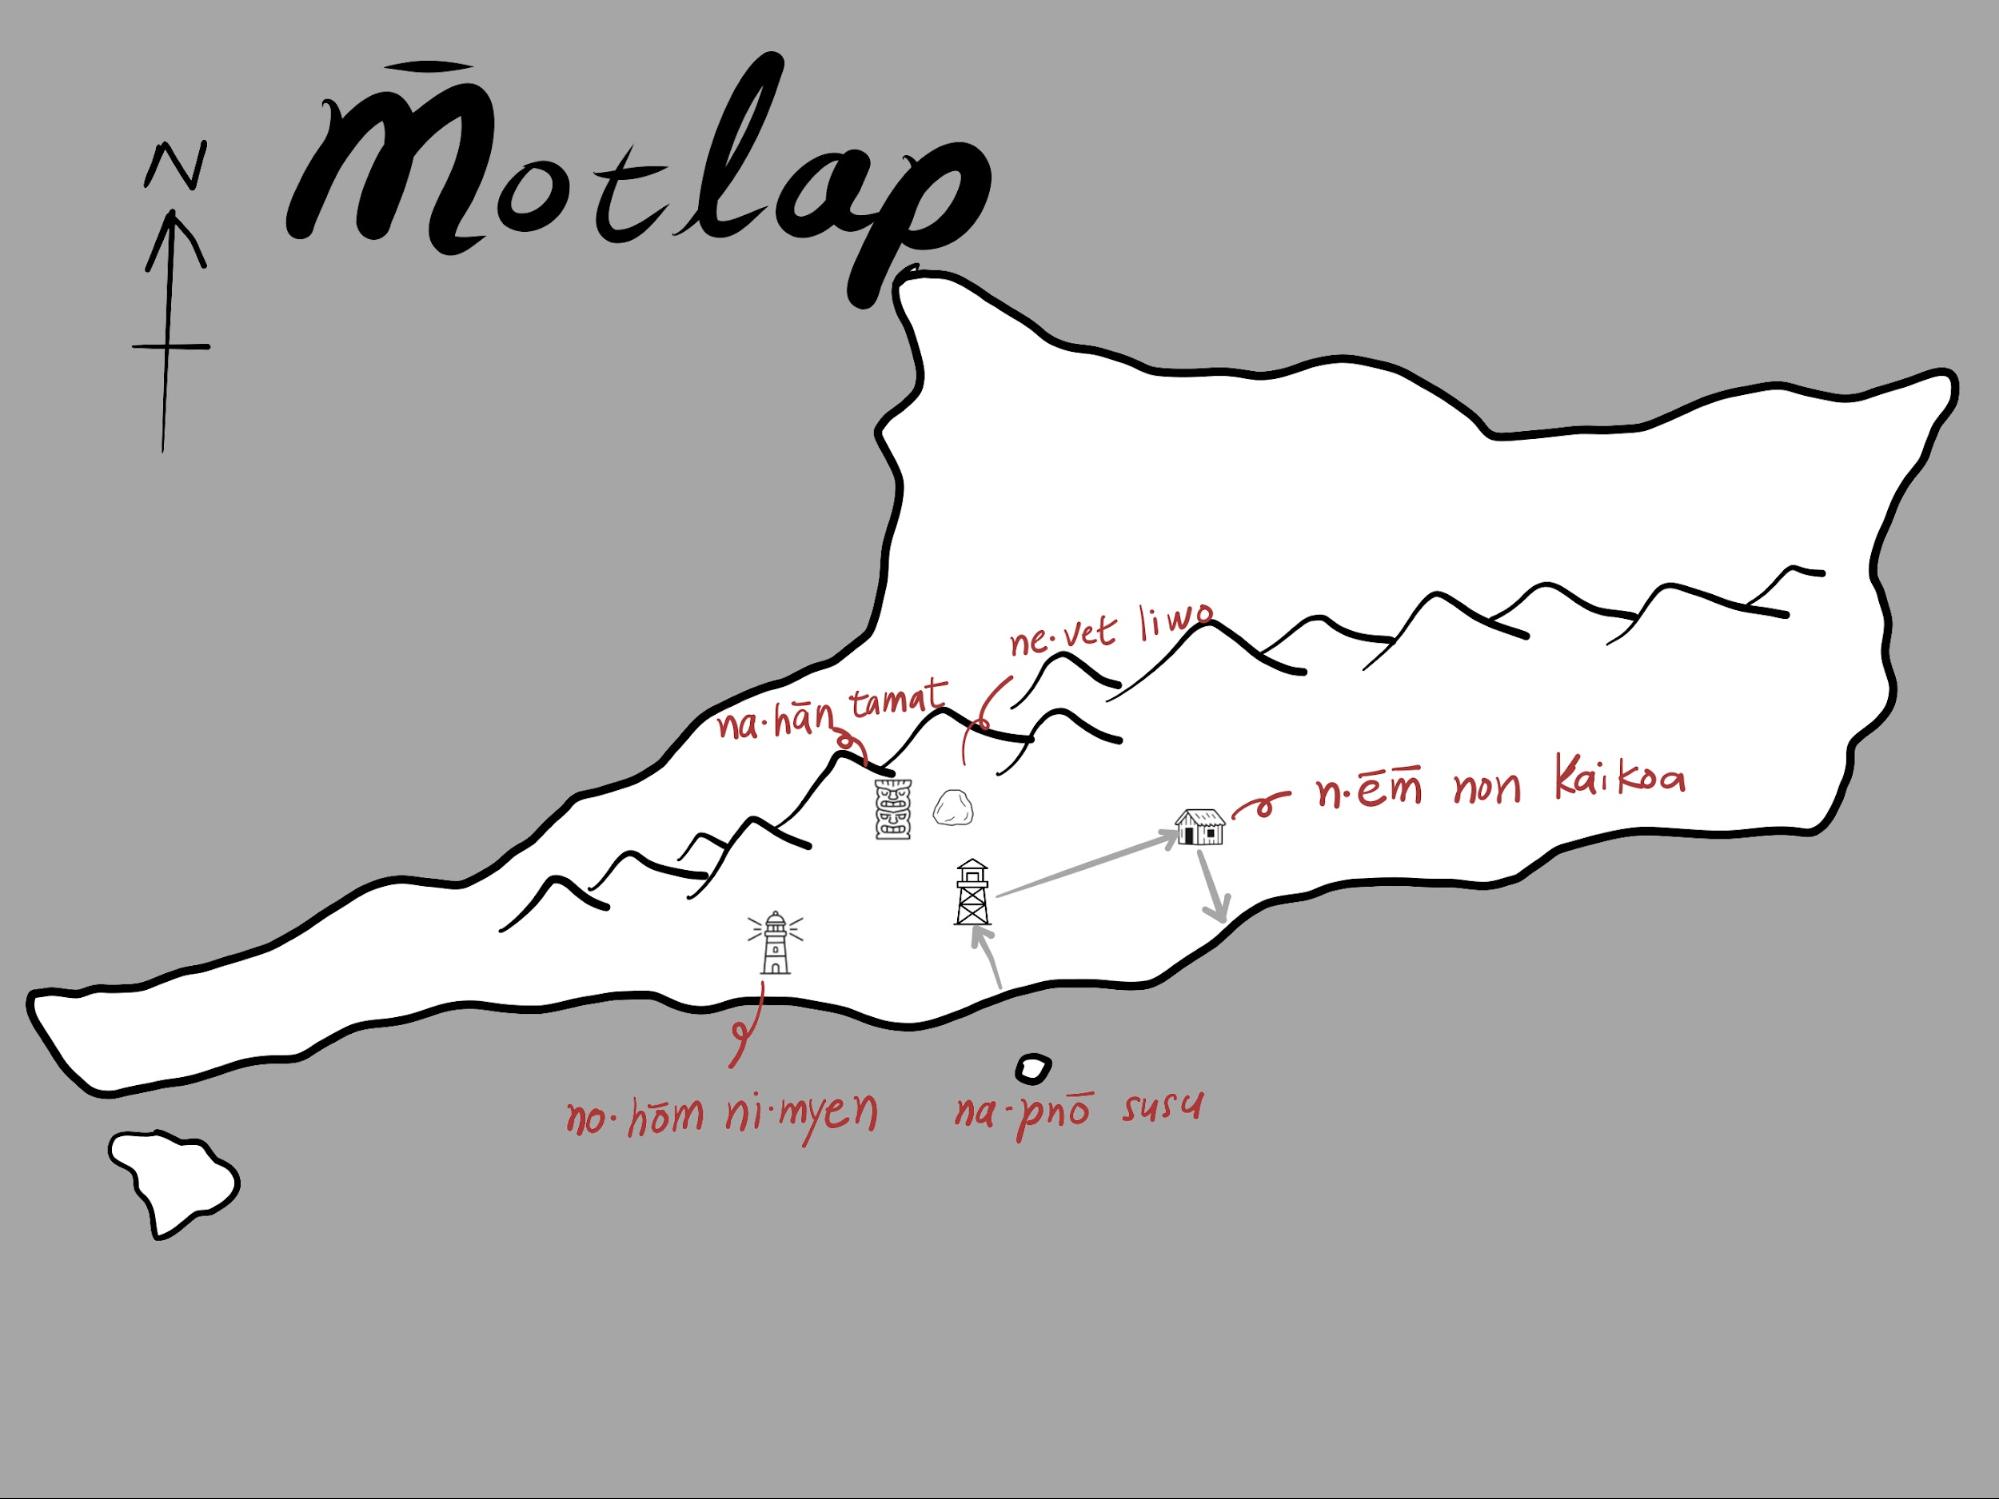 M̄otlap
N
ne·vet liwo
na·hān tamat
n·ēm̄ non Kaikoa
no·hōm ni·myen
na-pnō susu